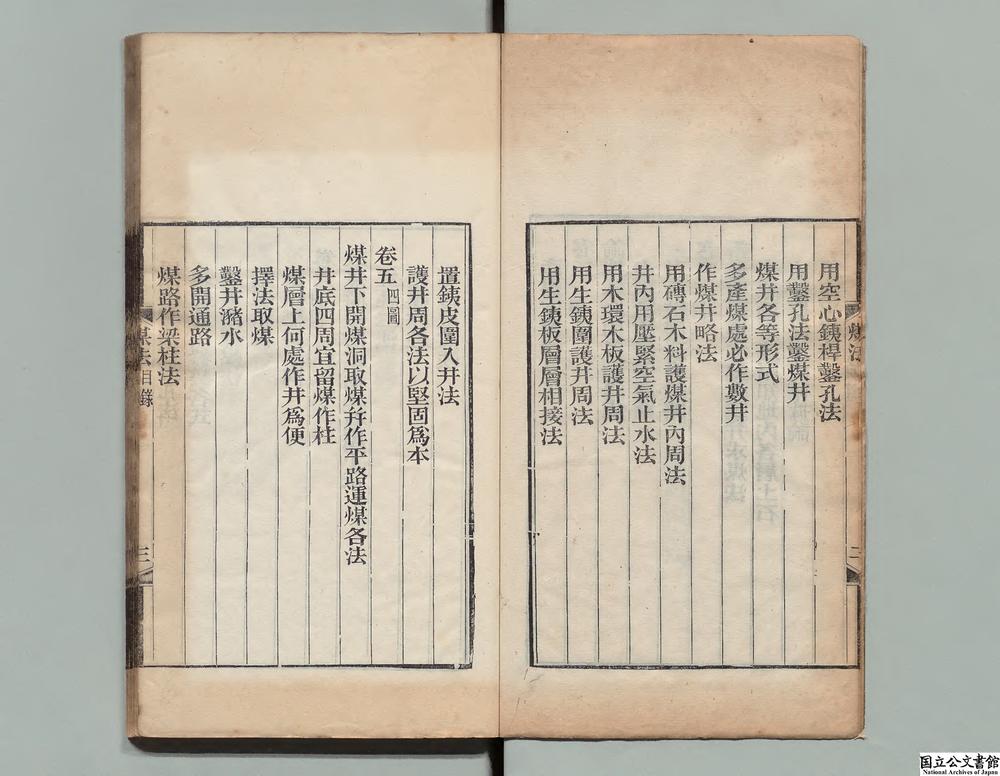 用空心銕桿鑿孔法
用鑿孔法鑿煤井
煤井各等形式
多產煤處必作數井
作煤井略法
用磚石木料護煤井內周法
井內用壓緊空氣止水法
用木環木板護井周法
用生銕圍護井周法
用生銕板層層相接法
煤法
二
置銕皮圍入井法
護井周各法以堅固爲本
卷五 四圖
煤井下開煤洞取煤幷作平路運煤各法
井底四周宜留煤作柱
煤層上何處作井爲便
擇法取煤
鑿井瀦水
多開通路
煤路作梁柱法
煤法 目錄
三
国立公文書館
National Archives of Japan